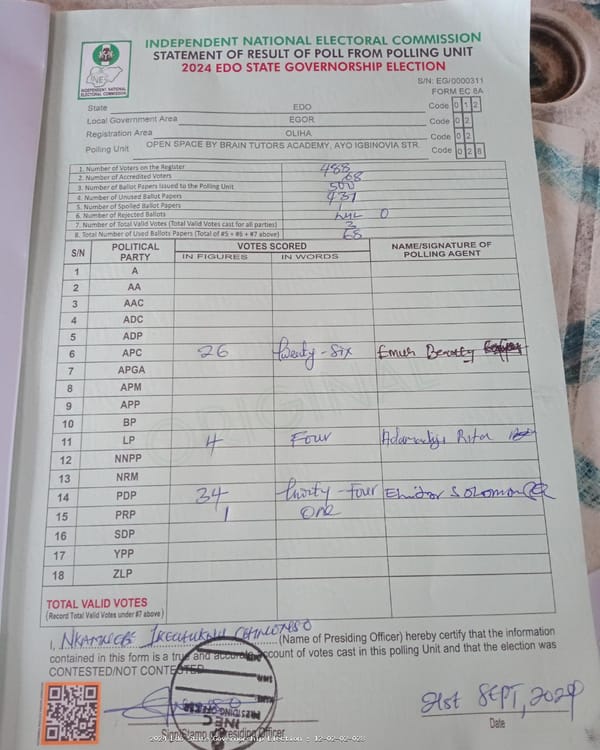 INDEPENDENT NATIONAL ELECTORAL COMMISSION
STATEMENT OF RESULT OF POLL FROM POLLING UNIT
2024 EDO STATE GOVERNORSHIP ELECTION
INEC
INDEPENDENT NATIONAL ELECTORAL COMMISSION
S/N: EG/0000311
FORM EC 8A
State EDO Code 0 1 2
Local Government Area EGOR Code 0 2
Registration Area OLIHA Code 0 2
Polling Unit OPEN SPACE BY BRAIN TUTORS ACADEMY, AYO IGBINOVIA STR. Code 0 2 8
1. Number of Voters on the Register 488
2. Number of Accredited Voters 68
3. Number of Ballot Papers Issued to the Polling Unit 500
4. Number of Unused Ballot Papers 431
5. Number of Spoiled Ballot Papers 1
6. Number of Rejected Ballots 0
7. Number of Total Valid Votes (Total Valid Votes cast for all parties)
8. Total Number of Used Ballots Papers (Total of #5 + #6 + #7 above) 68
S/N POLITICAL PARTY VOTES SCORED NAME/SIGNATURE OF POLLING AGENT
IN FIGURES IN WORDS
1 A
2 AA
3 AAC
4 ADC
5 ADP
6 APC 26 Twenty-Six Beauty
7 APGA
8 APM
9 APP
10 BP
11 LP 4 Four Rita
12 NNPP
13 NRM
14 PDP 34 Thirty-Four Solomon
15 PRP 1 One
16 SDP
17 YPP
18 ZLP
ORIGINAL
TOTAL VALID VOTES
(Record Total Valid Votes under #7 above)
I, (Name of Presiding Officer) hereby certify that the information
contained in this form is a true and accurate account of votes cast in this polling Unit and that the election was
CONTESTED/NOT CONTESTED
PRESIDING OFFICER
INEC
21st SEPT, 2024
Sign/Stamp of Presiding Officer
Date
2024 Edo State Governorship Election : 12-02-02-028